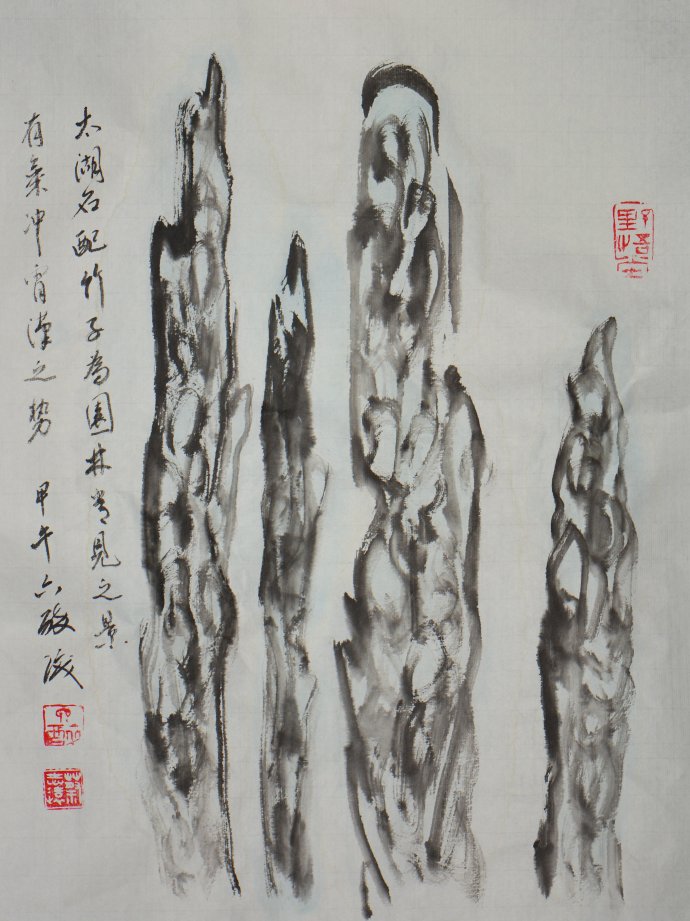 太湖石配竹子為園林常見之景
有氣冲霄漢之势 甲午